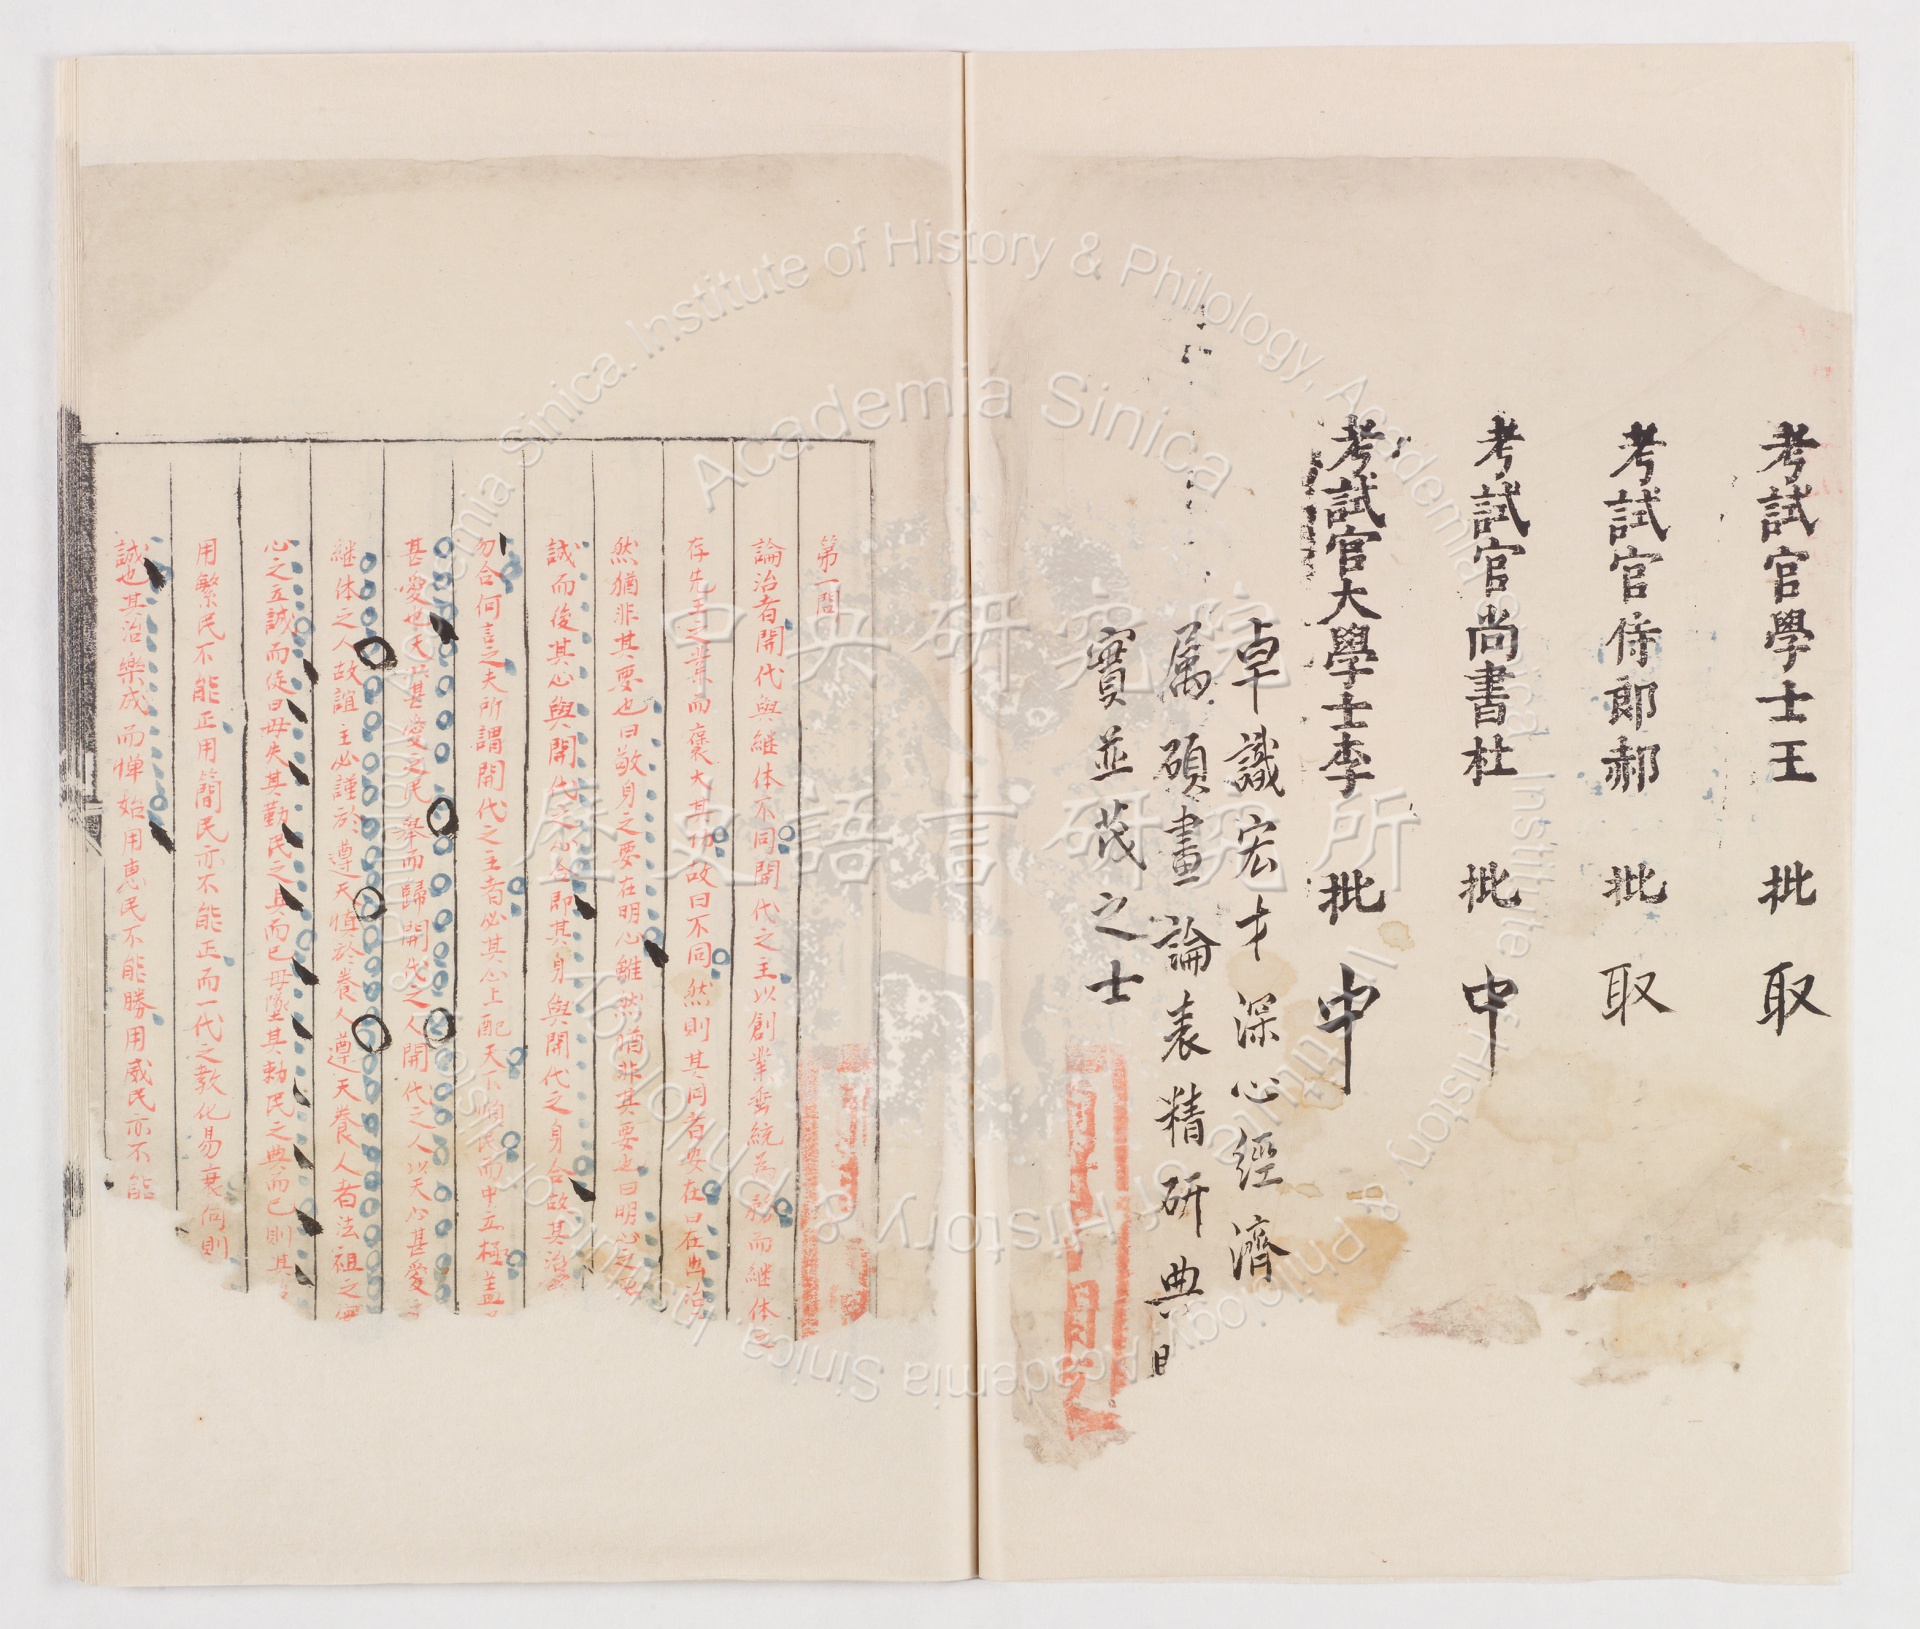 考試官學士王 批 取
考試官侍郎郝 批 取
考試官尚書杜 批 中
考試官大學士李 批 中
卓識宏才深心經濟
属碩畫論表精研典
實並茂之士
第一問
論治者開代與繼体不同開代之主以創業垂統為務而継体之
存先王之業而襃大其功故曰不同然則其同者安在曰在出治
然猶非其要也曰敬身之要在明心雖然猶非其要也曰明心之要
誠而後其心與開代之心合即其身與開代之身合故其治
勿合何言之夫所謂開代之主者必其心上配天下順民而中立極盖
甚愛也天以甚愛之民舉而歸開代之人開代之人以天心甚愛
継体之人故誼主必謹於遵天慎於養人遵天養人者法祖之
心之立誠而徒曰毋失其勤民之具而已毋墬其勅民之典而已則其
用繁民不能正用簡民亦不能正而一代之教化易衰何則
誠也其治樂成而憚始用惠民不能勝用威民亦不能
中央研究院
歷史語言研究所
Academia Sinica
Institute of History & Philology, Academia Sinica.